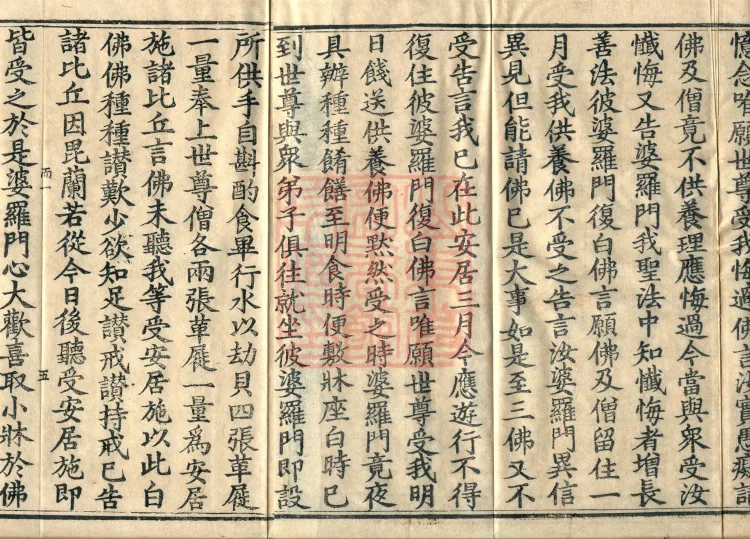 憶念唯願世尊受我悔過佛言汝實愚癡請
佛及僧竟不供養理應悔過今當與衆受汝
懺悔又告婆羅門我聖法中知懺悔者增長
善法彼婆羅門復白佛言願佛及僧留住一
月受我供養佛不受之告言汝婆羅門異信
異見但能請佛已是大事如是至三佛又不
受告言我已在此安居三月今應遊行不得
復住彼婆羅門復白佛言唯願世尊受我明
日餞送供養佛便默然受之時婆羅門竟夜
具辦種種餚饍至明食時便敷牀座白時已
到世尊與衆弟子俱往就坐彼婆羅門即設
所供手自斟酌食畢行水以劫貝四張革屣
一量奉上世尊僧各兩張革屣一量爲安居
施諸比丘言佛未聽我等受安居施以此白
佛佛種種讃歎少欲知足讃戒讃持戒已告
諸比丘因毘蘭若從今日後聽受安居施即
而一
五
皆受之於是婆羅門心大歡喜取小牀於佛